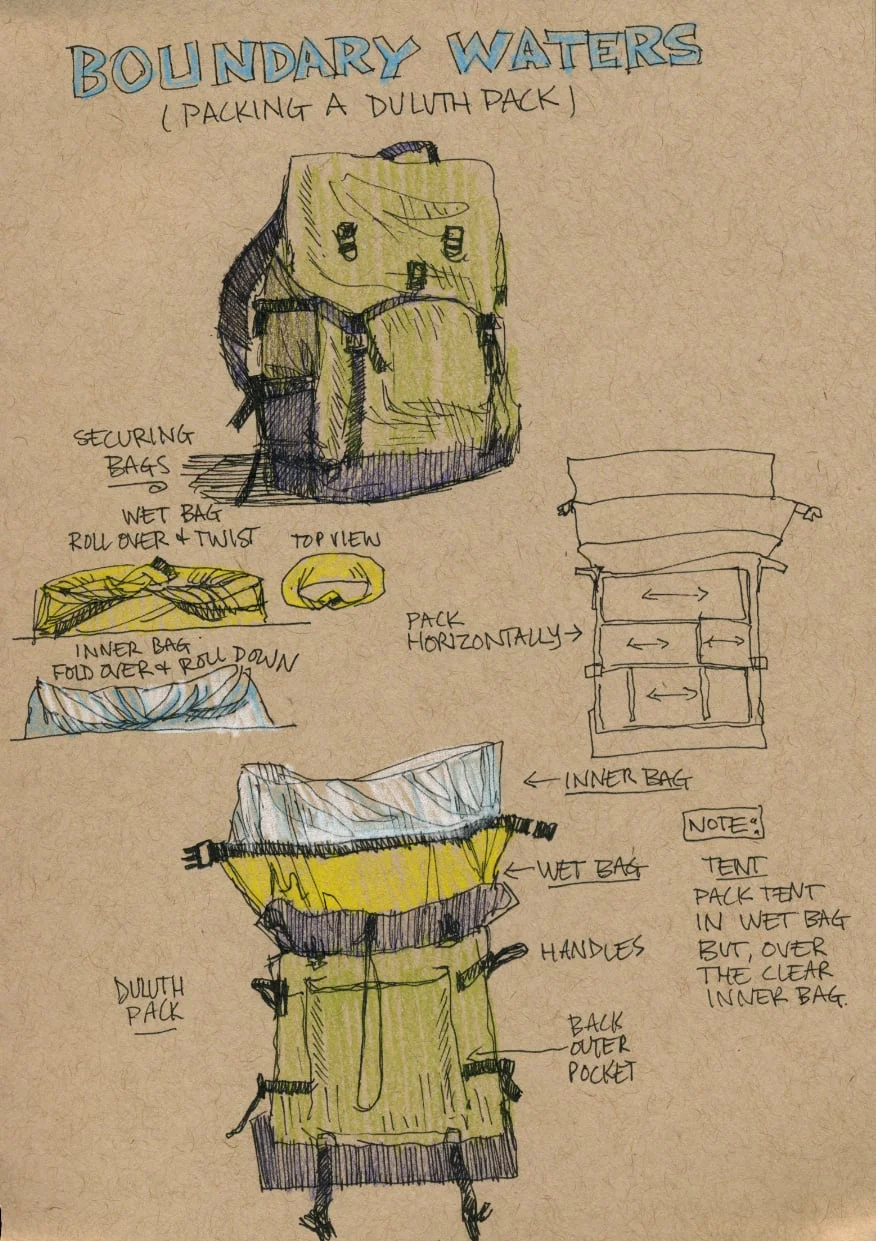 BOUNDARY WATERS
(PACKING A DULUTH PACK)
SECURING
BAGS
WET BAG
ROLL OVER & TWIST
TOP VIEW
INNER BAG
FOLD OVER & ROLL DOWN
PACK
HORIZONTALLY →
← INNER BAG
← WET BAG
HANDLES
DULUTH
PACK
BACK
OUTER
POCKET
NOTE:
TENT
PACK TENT
IN WET BAG
BUT, OVER
THE CLEAR
INNER BAG.